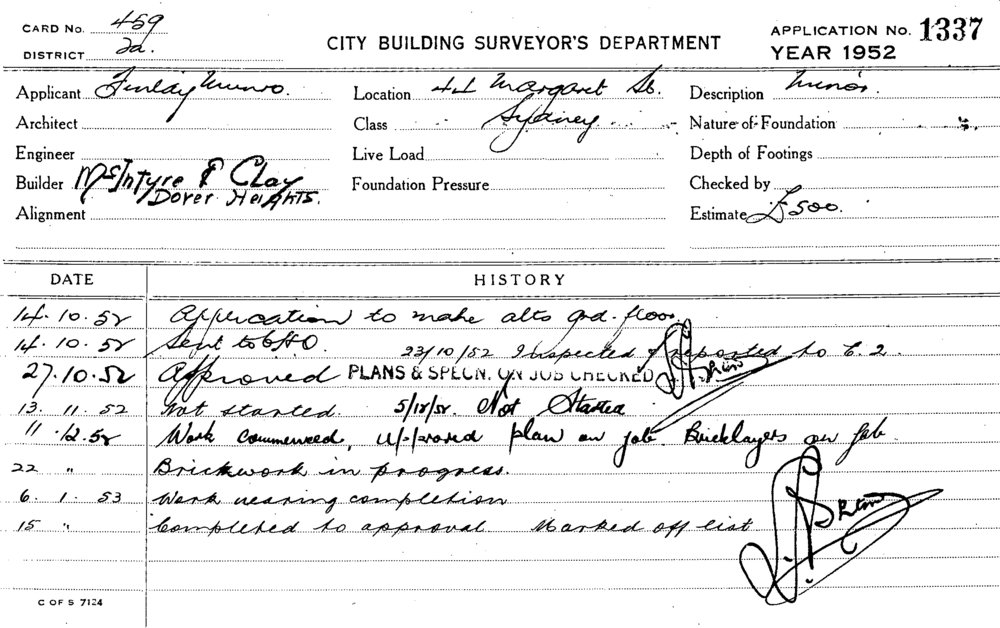 CARD No. 459
DISTRICT 2a.
CITY BUILDING SURVEYOR'S DEPARTMENT
APPLICATION No. 1337
YEAR 1952
Applicant Finlay Munro. Location 44 Margaret St. Description Minor.
Architect Class Sydney Nature of Foundation
Engineer Live Load Depth of Footings
Builder McIntyre & Clay Foundation Pressure Checked by
Dover Heights.
Alignment Estimate £500.
DATE HISTORY
14.10.52 Application to make alts grd. floor.
14.10.52 Sent to CHO. 23/10/52 Inspected & reported to C.2.
27.10.52 Approved PLANS & SPECN. ON JOB CHECKED
13.11.52 Not started. 5/12/52. Not Started
11.12.52 Work commenced, approved plan on job. Bricklayers on job.
22 " Brickwork in progress.
6.1.53 Work nearing completion
15 " Completed to approval Marked off list
C OF S 7124